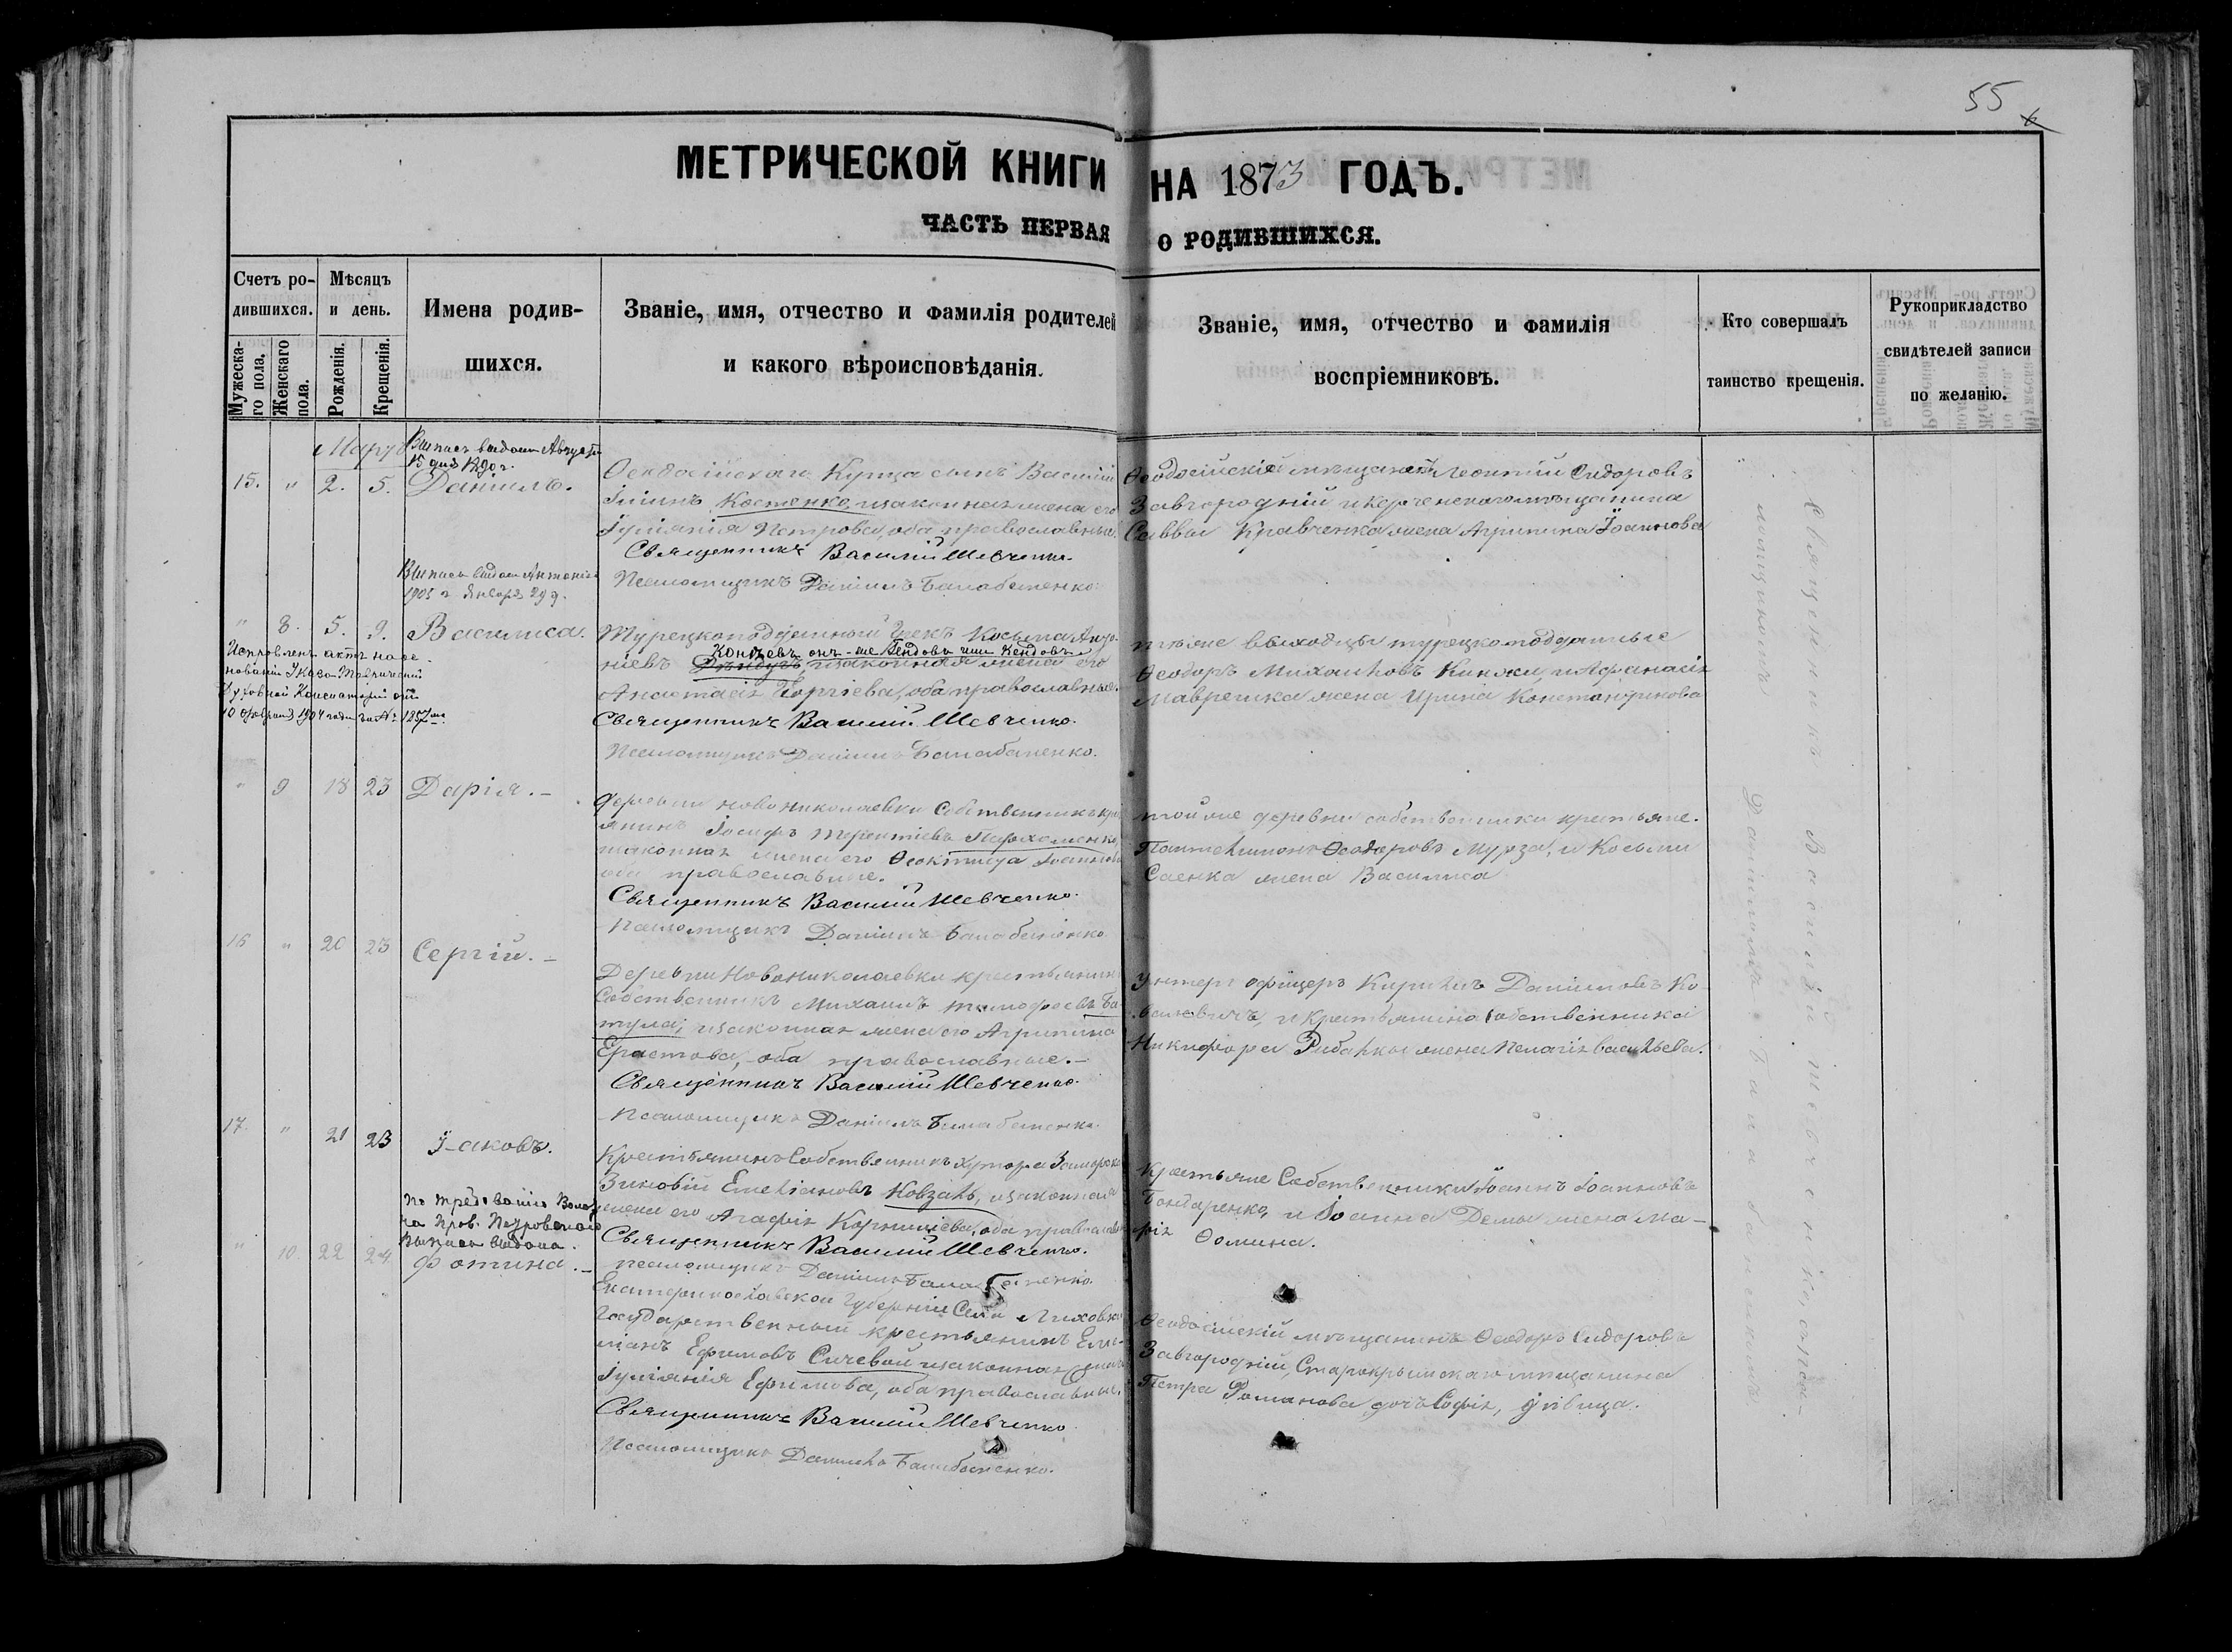 55
6
МЕТРИЧЕСКОЙ КНИГИ НА 1873 ГОДЪ.
ЧАСТЬ ПЕРВАЯ О РОДИВШИХСЯ.
Счетъ ро-
дившихся.
Мужеска-
го пола.
Женскаго
пола.
Мѣсяцъ
и день.
Рожденія.
Крещенія.
Имена родив-
шихся.
Званіе, имя, отчество и фамилія родителей
и какого вѣроисповѣданія.
Званіе, имя, отчество и фамилія
воспріемниковъ.
Кто совершалъ
таинство крещенія.
Рукоприкладство
свидѣтелей записи
по желанію.
Мартъ
Выпись выдана Августа
15 дня 1890 г.
15. " 2. 5. Даніилъ.
Ѳеодосійскаго Купца сынъ Василій
Іоилнъ Костенко, изаконная жена его
Іуліанія Петрова, оба православные.
Священникъ Василій Шевченко.
Псаломщикъ Даніилъ Балабаненко.
Ѳеодосійскій мѣщанинъ Леонтій Сидоровъ
Завгородній и керченскаго мѣщанина
Саввы Кравченка жена Агрипина Іоаннова
Выпись выдана
1905 г. Января 29 д.
" 8. 5. 9. Василиса.
Исправленъ актъ на ос-
нованіи Указа Таврической
Духовной Консисторіи отъ
10 февраля 1904 года за № 1257мъ.
Турецкоподданный Грекъ Косьма Анто-
Кондѣевъ онъ-же Гендовъ или Кендовъ
ніевъ изаконная жена его
Анастасія Георгіева, оба православные.
Священникъ Василій Шевченко.
Псаломщикъ Даніилъ Балабаненко.
тоже выходцы турецкоподданные
Ѳеодоръ Михаиловъ Кинжи, и Афанасія
Маврешка жена Ирина Константинова
" 9 18 23 Дарія.-
деревни новониколаевки Собственникъ кре
янинъ Іосифъ Терентіевъ Пархоменко,
изаконная жена его Ѳеоктиста Іоаннова
оба православные.
Священникъ Василій Шевченко.
Псаломщикъ Даніилъ Балабаненко
той же деревни собственники крестьяне.
Пантелимонъ Ѳеодоровъ Мурза, и Косьмы
Саенка жена Василиса
16 " 20 23 Сергій.-
Деревни Новониколаевки крестьянинъ
Собственникъ Михаилъ Тимофеевъ Ба-
тула, изаконная жена его Агрипина
Ерастова, оба православные.-
Священникъ Василій Шевченко.
Псаломщикъ Даніилъ Балабаненко
Унтеръ офицеръ Кирилъ Даніиловъ Ко-
вановичъ, и крестьянина собственника
Никифора Рибалки жена Пелагія васильева.
17. " 21 23 Іаковъ.
Крестьянинъ Собственникъ хутора
Зиновій Емеліановъ Ковзалъ, изаконная
жена его Агафія Корниліева, оба православ
Священникъ Василій Шевченко.
псаломщикъ Даніилъ Балабаненко
Крестьяне Собственники Іоаннъ Іоанновъ
Бондаренко, и Іоанна Демы жена Ма-
рія Ѳомина.
по требованію
Петровскаго
Выпись выдана.
" 10. 22 24 Фотина.-
Екатеринославской Губерніи Села Лиховки
Государственный крестьянинъ Еме-
ліанъ Ефимовъ Сичевой изаконная жена
Іуліанія Ефимова, оба православные.
Священникъ Василій Шевченко
Псаломщикъ Даніилъ Балабаненко.
Ѳеодосійскій мѣщанинъ Ѳеодоръ Сидоровъ
Завгородній, Старокрымскаго мѣщанина
Петра Романова дочь Софія, дѣвица.
Священникъ Василій Шевченко, спса-
ломщикомъ Даніиломъ Балабаненкомъ